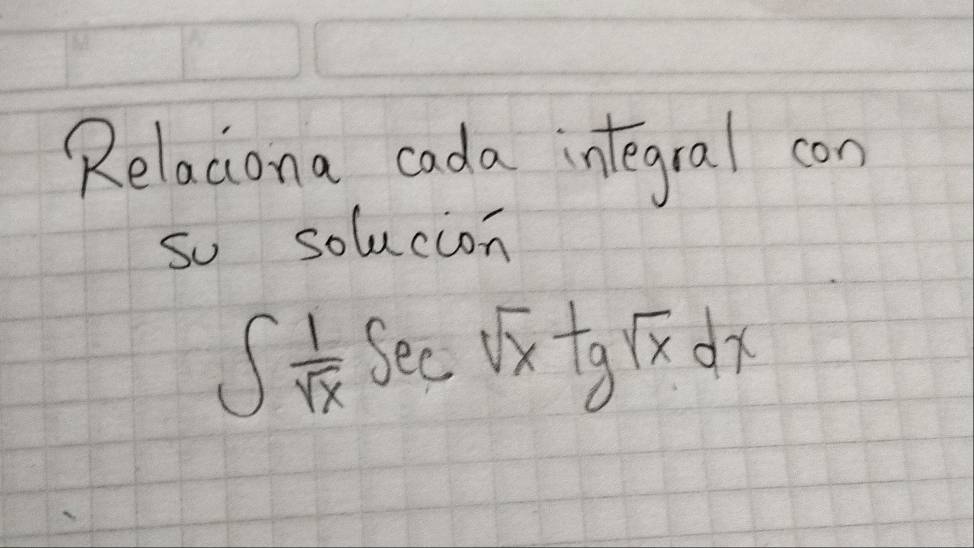 Relaciona cada integral con
su solución
∫ 1/√x Sec √x tg √x dx